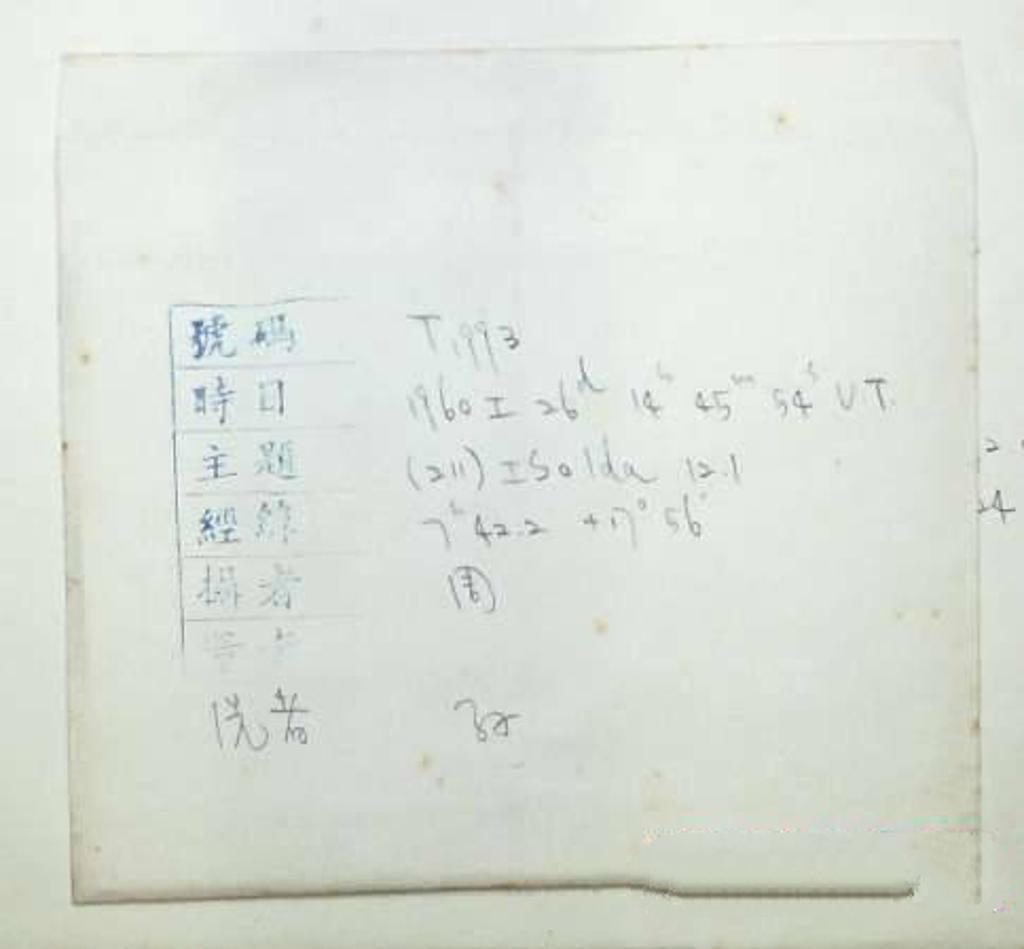 號碼 T1993
時日 1960 I 26d 14h 45m 54s UT.
主題 (211) ISolda 12.1
經緯 7h 42.2 +17° 56'
攝者 周
洗者